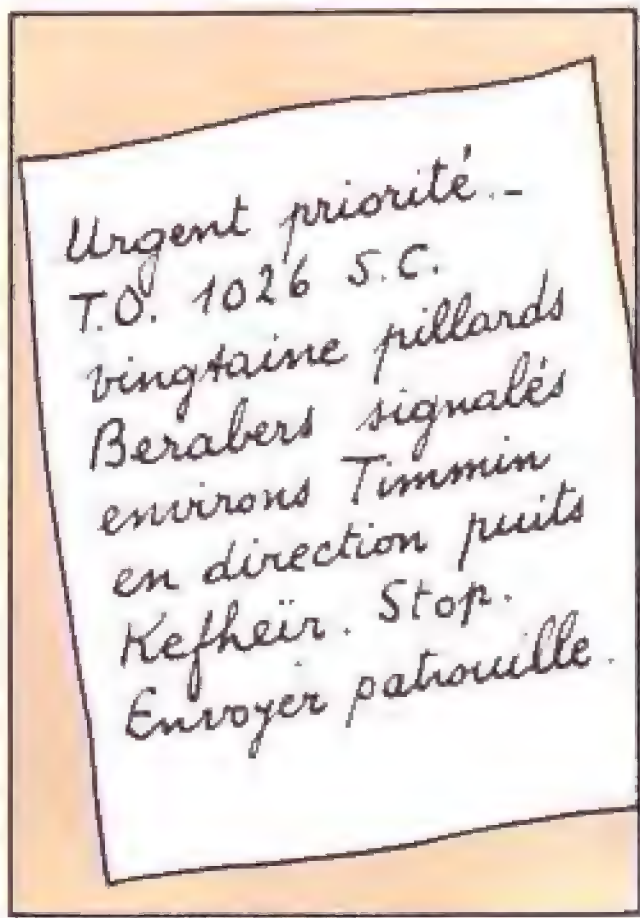 Urgent priorité._
T.O. 1026 S.C.
vingtaine pillards
Berabers signalés
environs Timmin
en direction puits
Kefheïr. Stop.
Envoyer patrouille.